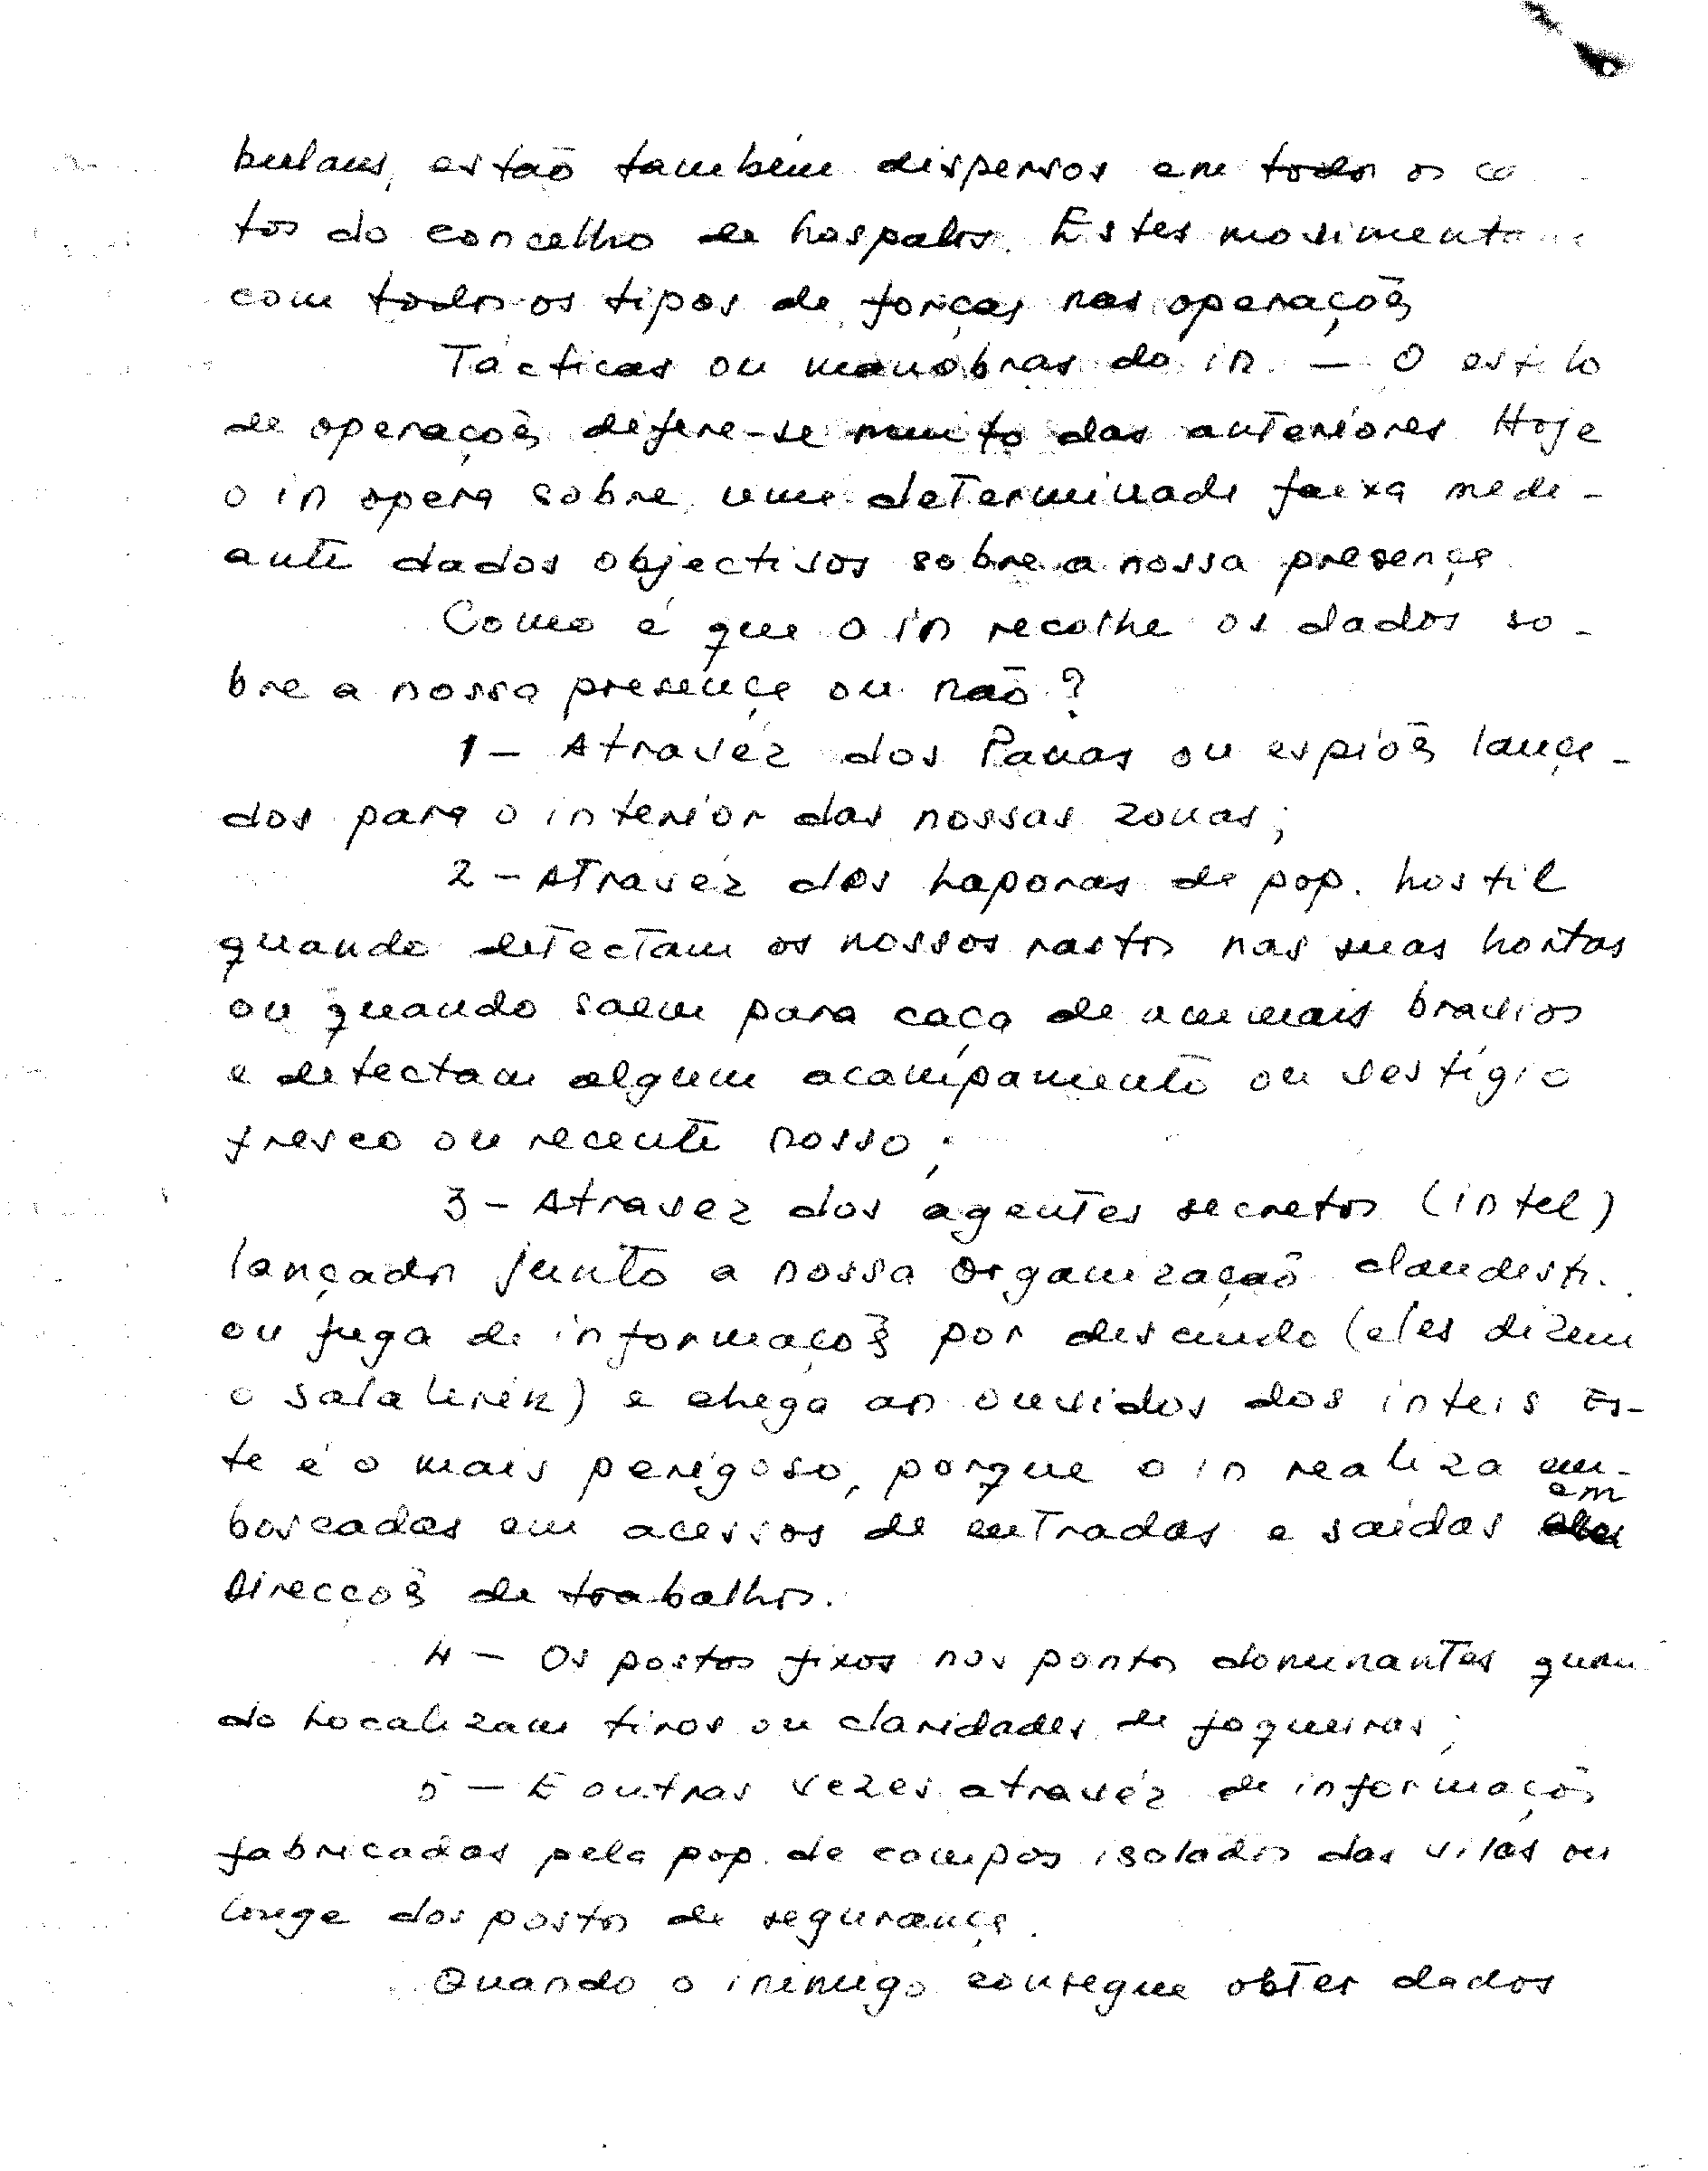 bulans, estão também dispersos em todos os
tos do concelho de Lospalos. Estes movimenta
com todos os tipos de forças nas operações
Tácticas ou manóbras do in. — O estilo
de operações difere-se muito das anteriores Hoje
o in opera sobre uma determinada faixa medi-
ante dados objectivos sobre a nossa presença
Como é que o in recolhe os dados so-
bre a nossa presença ou não?
1 — Atravéz dos Panas ou espiões lança-
dos para o interior das nossas zonas;
2 — Atravéz dos laporas de pop. hostil
quando detectam os nossos rastos nas suas hortas
ou quando saem para caça de animais bravios
e detectam algum acampamento ou vestígio
fresco ou recente nosso;
3 — Atravez dos agentes secretos (intel)
lançados junto a nossa organização clandesti.
ou fuga de informações por descuido (eles dizem
o salalurik) e chega aos ouvidos dos inteis Es-
te é o mais perigoso, porque o in realiza em-
boscadas em acessos de entradas e saídas em
direcções de trabalhos.
4 — Os postos fixos nos pontos dominantes quan
do localizam tiros ou claridades de fogueiras;
5 — E outras vezes atravéz de informações
fabricadas pela pop. de campos isolados das vilas ou
longe dos postos de segurança.
Quando o inimigo consegue obter dados